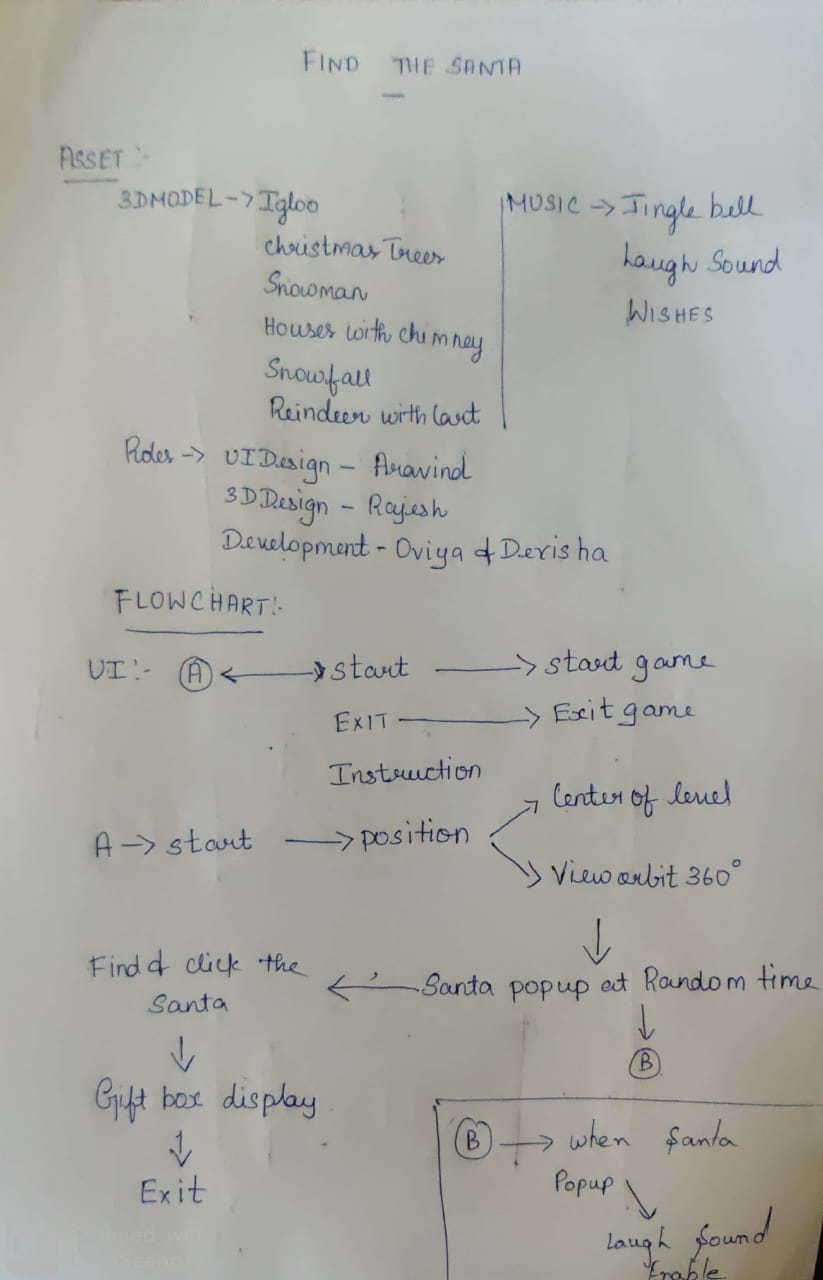 FIND THE SANTA
ASSET :-
3DMODEL -> Igloo
christmas Trees
Snowman
Houses with chimney
Snowfall
Reindeer with Cart
MUSIC -> Jingle bell
Laugh Sound
WISHES
Roles -> UI Design - Aravind
3D Design - Rajesh
Development - Oviya & Derisha
FLOWCHART:-
UI :- A <-> start -> start game
EXIT -> Exit game
Instruction
A -> start -> position
Center of level
View orbit 360°
Santa popup at Random time
B
Find & click the
Santa
Gift box display
Exit
B -> when Santa
Popup
Laugh Sound
Enable